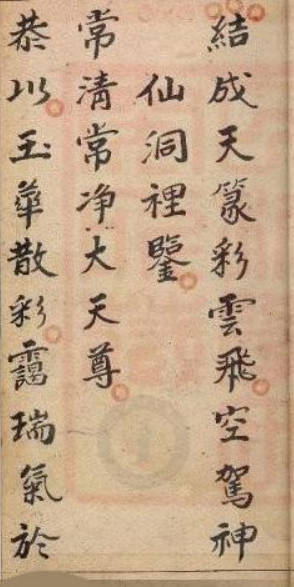 結成天篆彩雲飛空駕神
仙洞裡鑒
常清常净大天尊
恭以玉華散彩靄瑞氣於